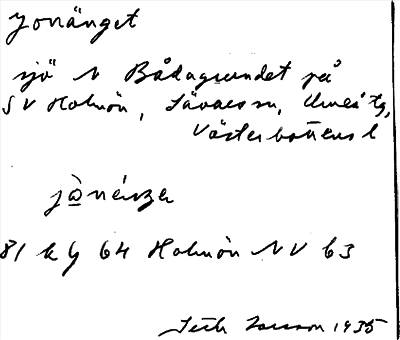 Jonänget
sjö N Bådagrundet på
SV Holmön, Sävar sn, Umeå tg,
Västerbottens l
81 k G 64 Holmön NV 63
1935